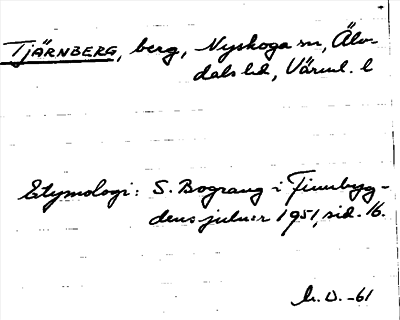 TJÄRNBERG, berg, Nyskoga sn, Älv-
dals hd, Värml. l
Etymologi: S. Bograng i Finnbyg-
dens julnr 1951, sid. 16.
M.O. -61